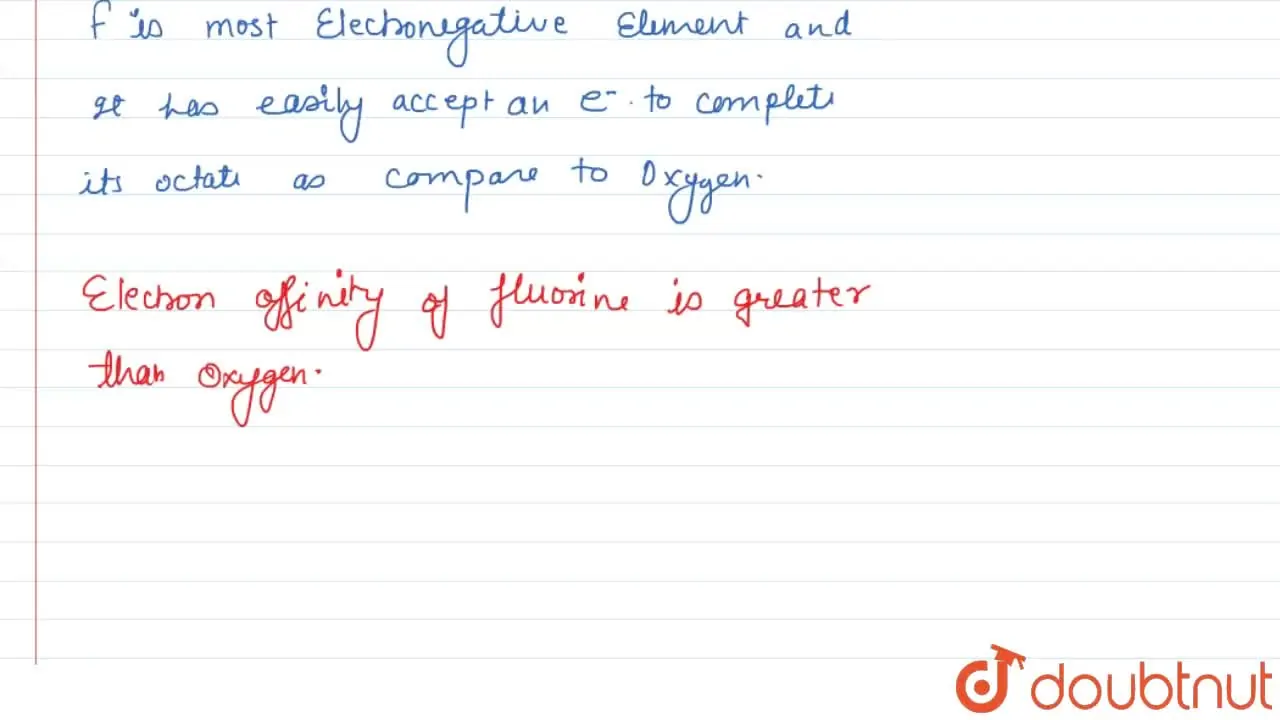 F is most Electronegative Element and
It has easily accept an e⁻ to complete
its octate as compare to Oxygen.
Electron affinity of fluorine is greater
than Oxygen.
doubtnut